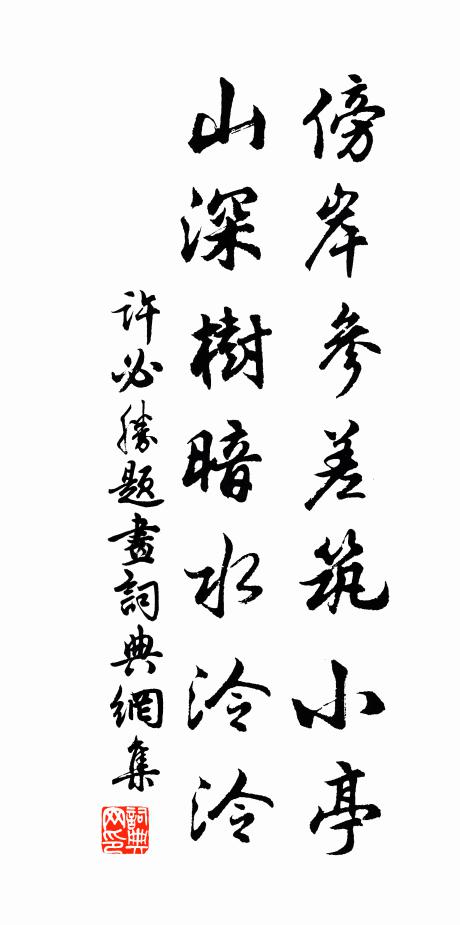 傍岸參差筑小亭
山深樹暗水泠泠
許必勝題畫詞典網集
詞典网印